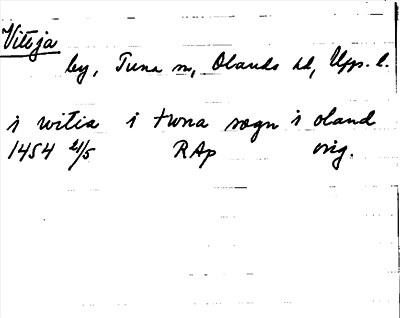 Vitija
by, Tuna sn, Olands hd, Upps. l.
i witia i twna sogn i oland
1454 21/5 RAp orig.